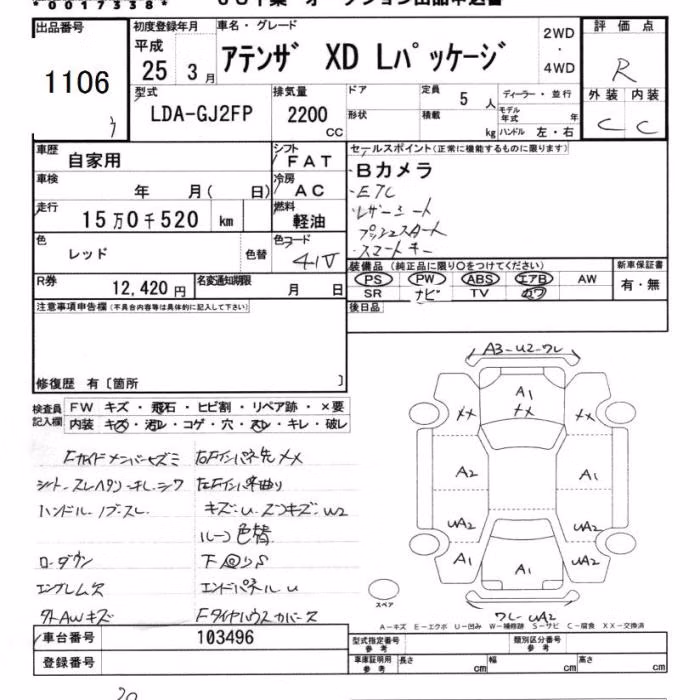 *0017338*
出品番号
1106
初度登録年月
平成
25 3月
車名・グレード
アテンザ XD Lパッケージ
2WD
・
4WD
評価点
R
外装 内装
C C
型式
LDA-GJ2FP
排気量
2200
CC
ドア
形状
定員
5人
積載
kg
ディーラー・並行
モデル
年式 年
ハンドル 左・右
車歴
自家用
シフト
FAT
車検
年 月( 日)
冷房
AC
走行
15万0千520 km
燃料
軽油
色
レッド
色替
色コード
41V
R券
12,420円
名変通知期限
月 日
セールスポイント(正常に機能するものに限ります)
・Bカメラ
・ETC
・レザーシート
プッシュスタート
・スマートキー
装備品 (純正品に限り○をつけてください)
PS PW ABS エアB AW
SR ナビ TV カワ
新車保証書
有・無
後日品
注意事項申告欄(不具合内容等は具体的に記入して下さい)
修復歴 有〔箇所 〕
検査員
記入欄
FW キズ・飛石・ヒビ割・リペア跡・×要
内装 キズ・汚レ・コゲ・穴・スレ・キレ・破レ
シート・スレヘタリ・チレ・シワ
ハンドル・ノブ・スレ
キズ・U・エクボキズ・W2
ルーフ色替
ローダウン
下回りS
エンブレム欠
エンドパネルU
タトAWキズ
A3-U2-ワレ
A1
XX
XX
XX
A2
A1
UA2
UA2
A1
A1
UA2
ワレ-UA2
スペア
A-キズ E-エクボ U-凹み W-補修跡 S-サビ C-腐食 XX-交換済
車台番号
103496
登録番号
型式指定番号
参考
類別区分番号
参考
車庫証明用
参考
長さ cm
幅 cm
高さ cm